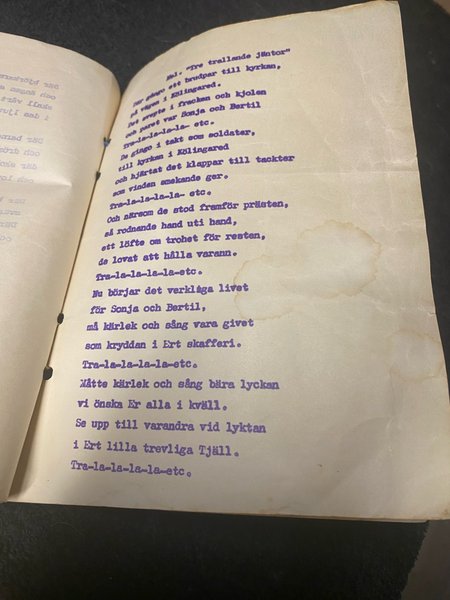 Mel. "Tre trallande jäntor"
Där gingo ett brudpar till kyrkan,
på vägen i Kölingared.
Det svepte i fracken och kjolen
och paret var Sonja och Bertil
Tra-la-la-la-la- etc.
De gingo i takt som soldater,
till kyrkan i Kölingared
och hjärtat det klappar till takter
som vinden smekande ger.
Tra-la-la-la-la- etc.
Och närsom de stod framför prästen,
så rodnande hand uti hand,
ett löfte om trohet för resten,
de lovat att hålla varann.
Tra-la-la-la-la-etc.
Nu börjar det verkliga livet
för Sonja och Bertil,
må kärlek och sång vara givet
som kryddan i Ert skafferi.
Tra-la-la-la-la-etc.
Måtte kärlek och sång bära lyckan
vi önska Er alla i kväll.
Se upp till varandra vid lyktan
i Ert lilla trevliga Tjäll.
Tra-la-la-la-la-etc.